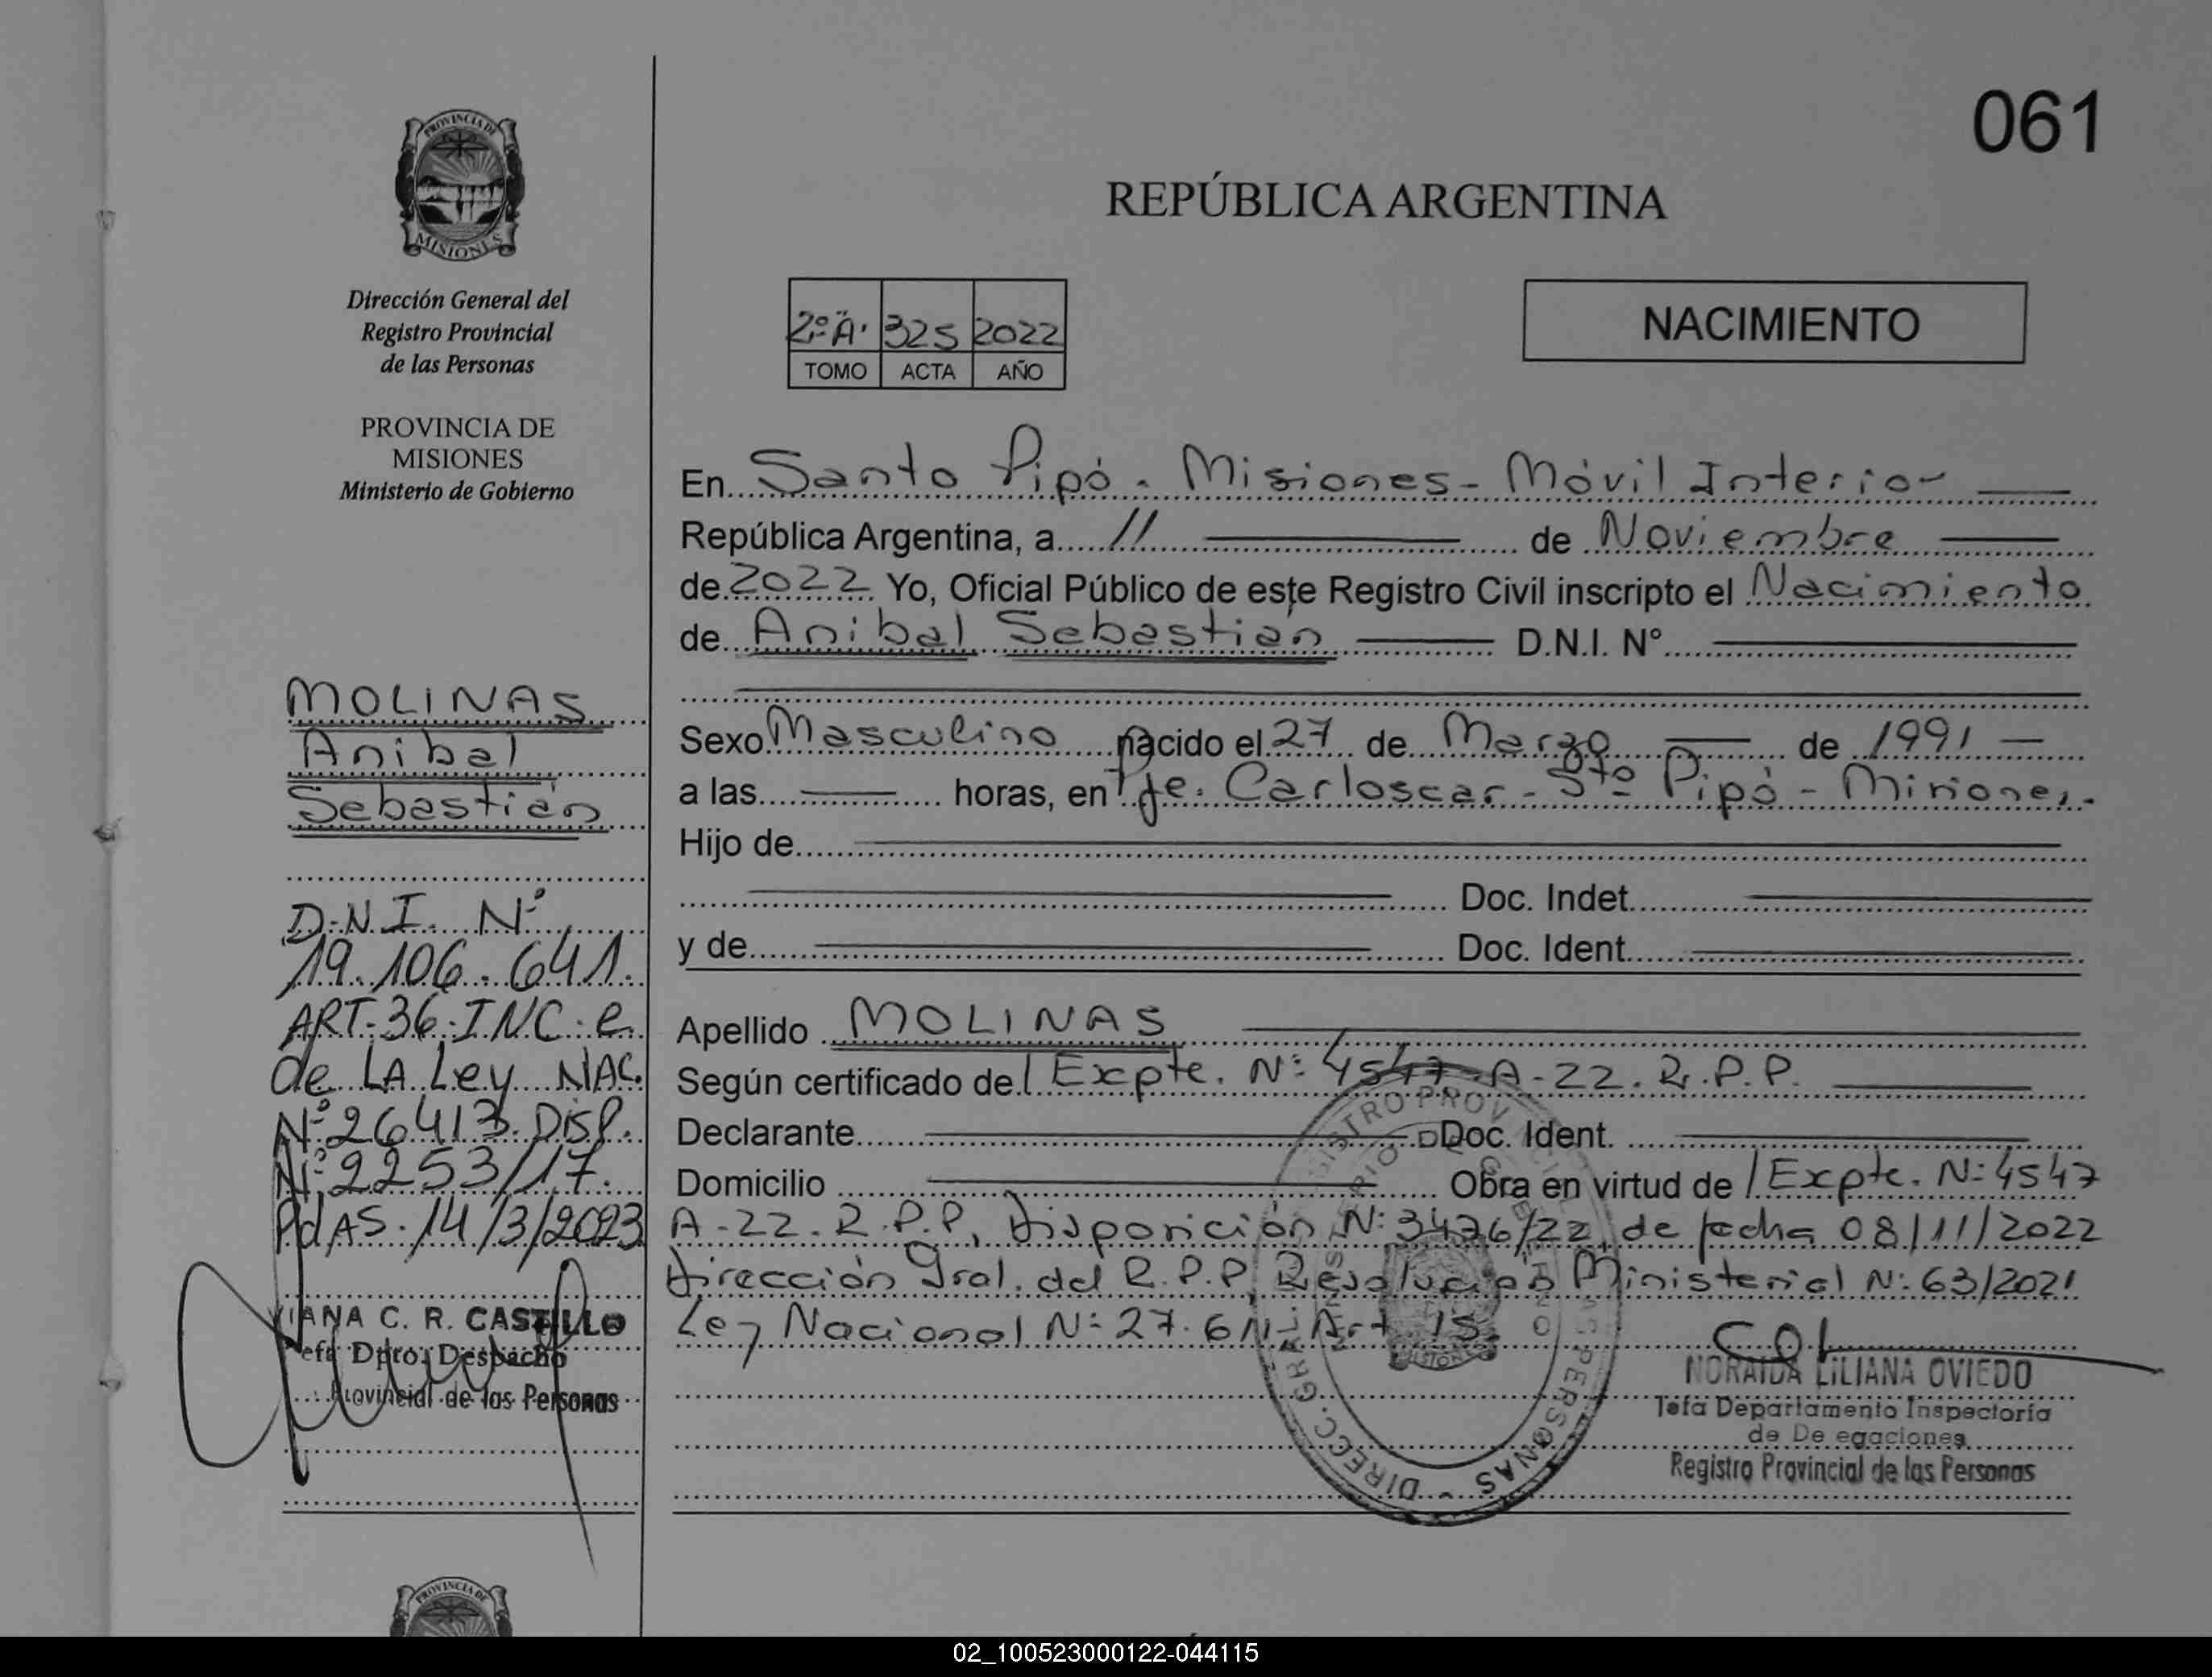 061
PROVINCIA DE
MISIONES
REPÚBLICA ARGENTINA
Dirección General del
Registro Provincial
de las Personas
PROVINCIA DE
MISIONES
Ministerio de Gobierno
2º "A" 325 2022
TOMO ACTA AÑO
NACIMIENTO
En Santo Pipó - Misiones - Móvil Interior
República Argentina, a 11 de Noviembre
de 2022 Yo, Oficial Público de este Registro Civil inscripto el Nacimiento
de Anibal Sebastián D.N.I. Nº
Sexo Masculino nacido el 27 de Marzo de 1991
a las horas, en Pje. Carloscar - Sto Pipó - Misiones.
Hijo de
Doc. Indet.
y de Doc. Ident.
Apellido MOLINAS
Según certificado de Expte. Nº 4547-A-22. R.P.P.
Declarante Doc. Ident.
Domicilio Obra en virtud de Expte. Nº 4547
A-22-R.P.P, Disposición Nº 3476/22, de fecha 08/11/2022
Dirección Gral. del R.P.P, Resolución Ministerial Nº 63/2021
Ley Nacional Nº 27.611 - Art 15.
MOLINAS
Anibal
Sebastián
D.N.I. Nº
19.106.641.
ART. 36. INC. e.
de LA Ley NAC.
Nº 26413. Disp.
Nº 2253/17.
PdAS. 14/3/2023
IANA C. R. CASTILLO
Jefa Dpto. Despacho
Provincial de las Personas
NORAIDA LILIANA OVIEDO
Jefa Departamento Inspectoría
de De egaciones
Registro Provincial de las Personas
DIRECC. GRAL.
PERSONAS
PROVINCIA DE
02_100523000122-044115